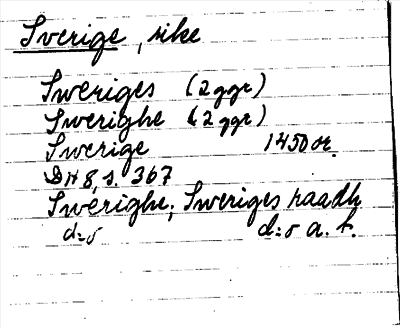 Sverige, rike
Sweriges (2 ggr)
Swerighe (2 ggr)
Swerige 1450 or.
DN 8, s. 367
Swerighe; Sweriges raadh
d:o d:o a. t.